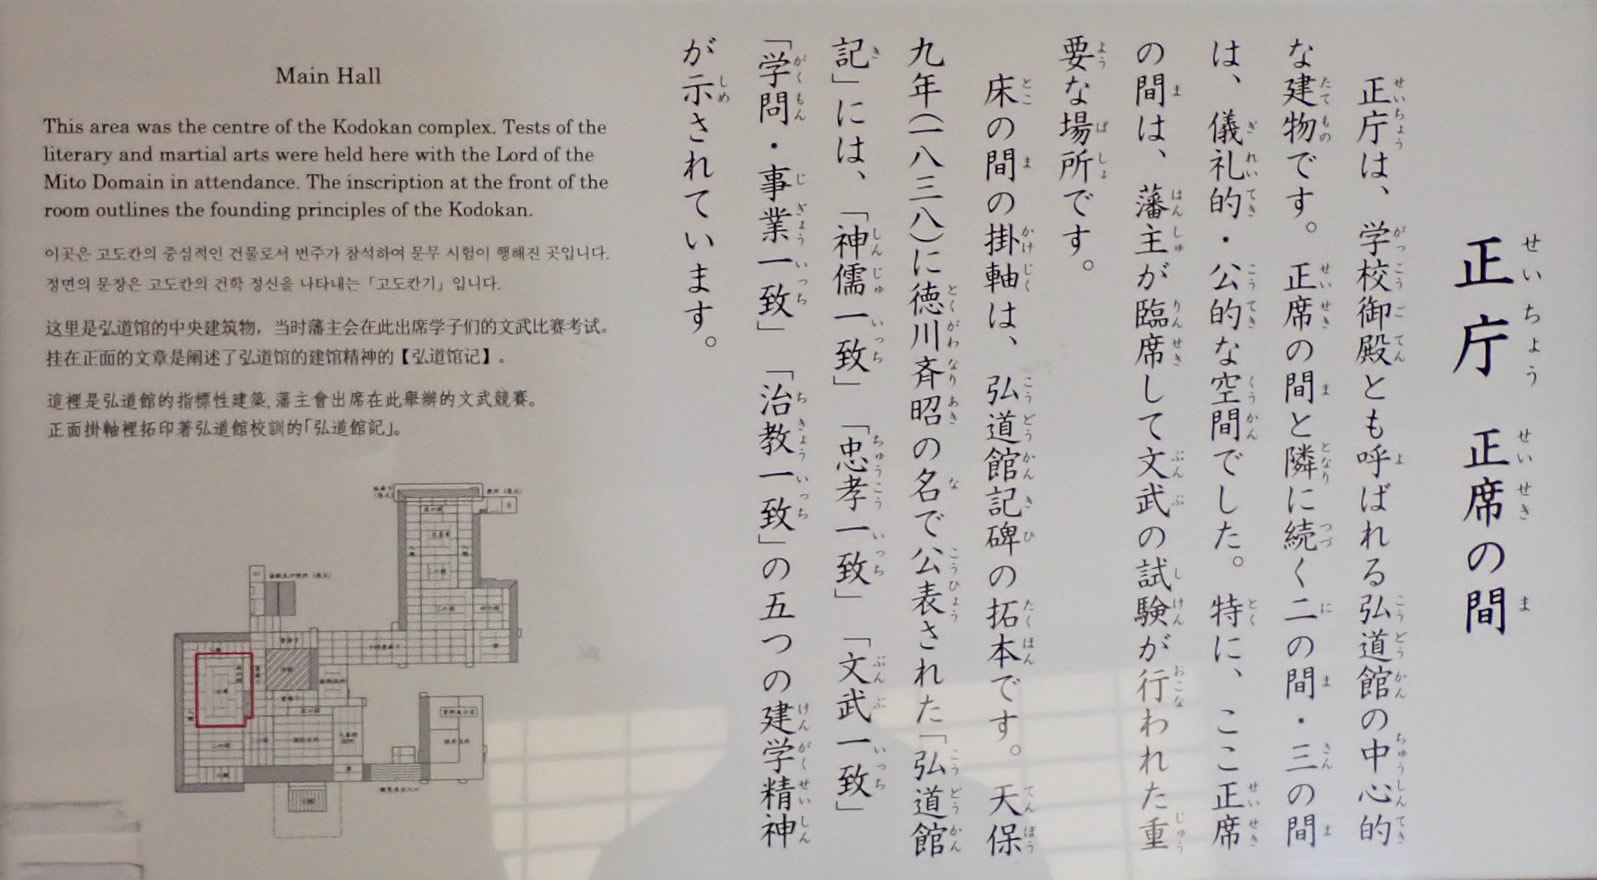 正庁 正席の間
正庁は、学校御殿とも呼ばれる弘道館の中心的
な建物です。正席の間と隣に続く二の間・三の間
は、儀礼的・公的な空間でした。特に、ここ正席
の間は、藩主が臨席して文武の試験が行われた重
要な場所です。
床の間の掛軸は、弘道館記碑の拓本です。天保
九年(一八三八)に徳川斉昭の名で公表された「弘道館
記」には、「神儒一致」「忠孝一致」「文武一致」
「学問・事業一致」「治教一致」の五つの建学精神
が示されています。
Main Hall
This area was the centre of the Kodokan complex. Tests of the
literary and martial arts were held here with the Lord of the
Mito Domain in attendance. The inscription at the front of the
room outlines the founding principles of the Kodokan.
이곳은 고도칸의 중심적인 건물로서 번주가 참석하여 문무 시험이 행해진 곳입니다.
정면의 문장은 고도칸의 건학 정신을 나타내는「고도칸기」입니다.
这里是弘道馆的中央建筑物，当时藩主会在此出席学子们的文武比赛考试。
挂在正面的文章是阐述了弘道馆的建馆精神的【弘道馆记】。
這裡是弘道館的指標性建築,藩主會出席在此舉辦的文武競賽。
正面掛軸裡拓印著弘道館校訓的「弘道館記」。